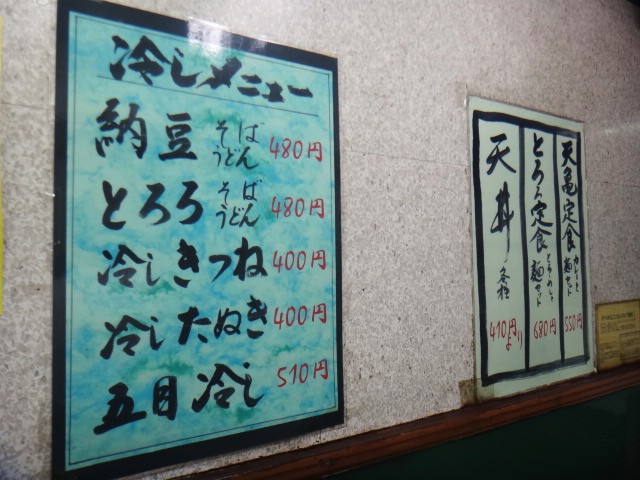 冷しメニュー
納豆 そば うどん 480円
とろろ そば うどん 480円
冷しきつね 400円
冷したぬき 400円
五目冷し 510円
天亀定食 カレーと麺セット 550円
とろろ定食 とろろめし 麺セット 680円
天丼 各種 410円より